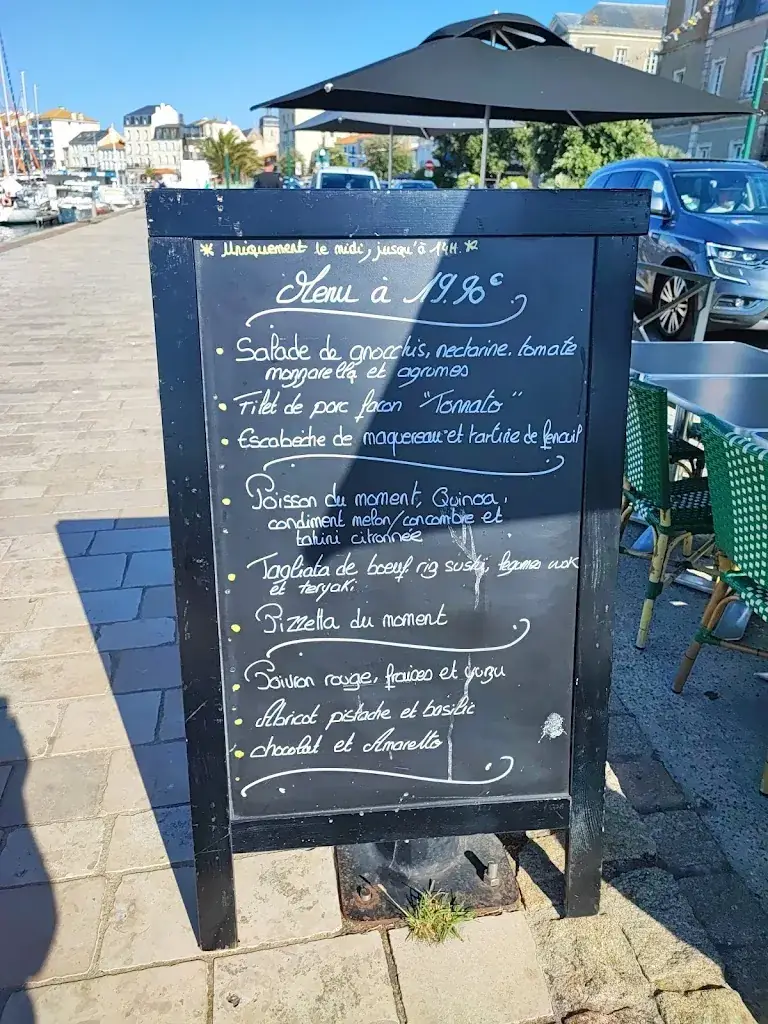 * Uniquement le midi, jusqu'à 14H. *
Menu à 19.90€
• Salade de gnocchis, nectarine. tomate
mozzarella et agrumes
• Filet de porc façon "Tonnato"
• Escabeche de maquereau et tartine de fenouil
• Poisson du moment, Quinoa,
condiment melon/concombre et
tahini citronnée
• Tagliata de boeuf rig sushi, legumes wok
et teryaki
• Pizzetta du moment
• Poivron rouge, fraises et yuzu
• Abricot pistache et basilic
• chocolat et Amaretto